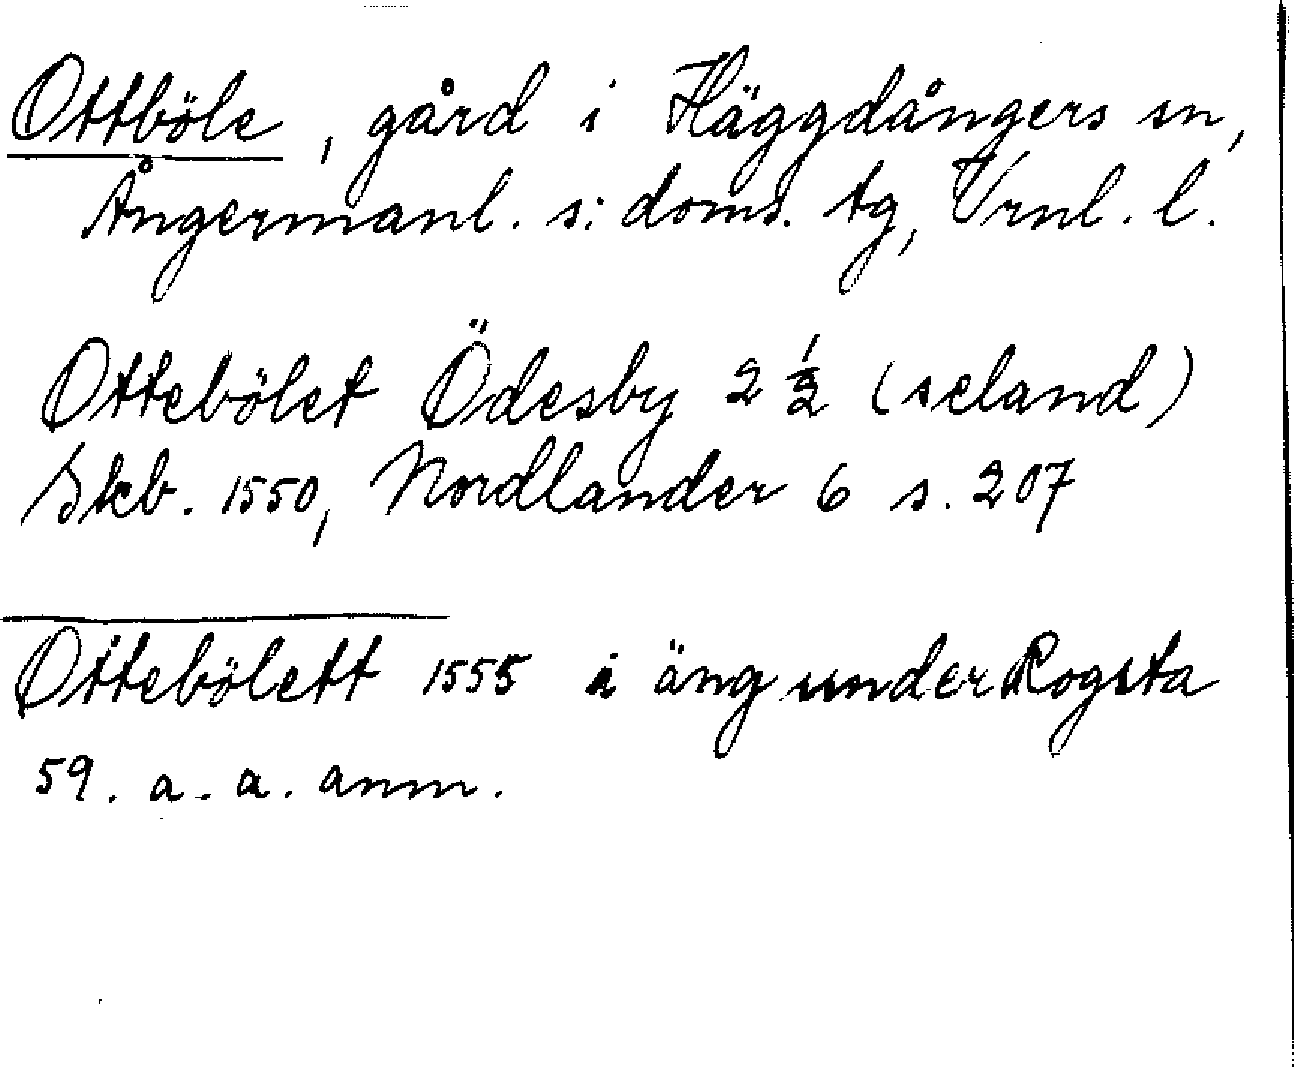 Ottböle, gård i Häggdångers sn,
Ångermanl. s:doms. tg, Vrnl. l.
Ottebölet Ödesby 2 1/2 (seland)
Skb. 1550, Nordlander 6 s. 207
Ottebölett 1555 i äng under Rogsta
59. a. a. anm.